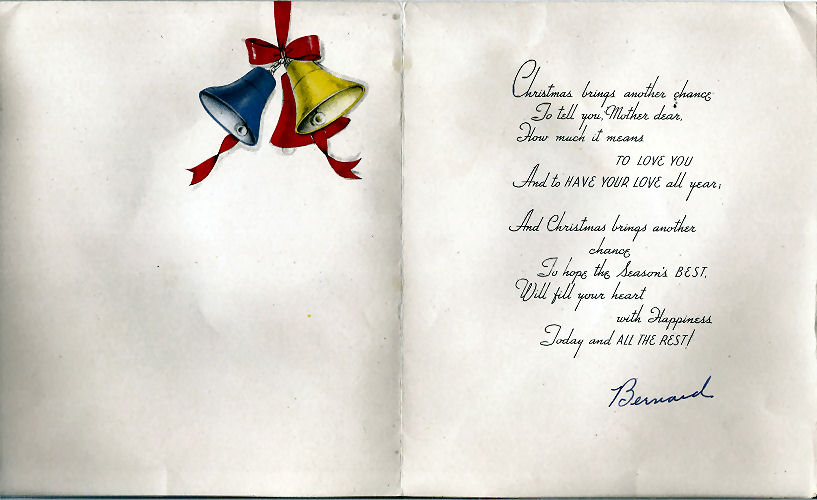 Christmas brings another chance
To tell you, Mother dear,
How much it means
TO LOVE YOU
And to HAVE YOUR LOVE all year;
And Christmas brings another
chance
To hope the Season's BEST,
Will fill your heart
with Happiness
Today and ALL THE REST!
Bernard